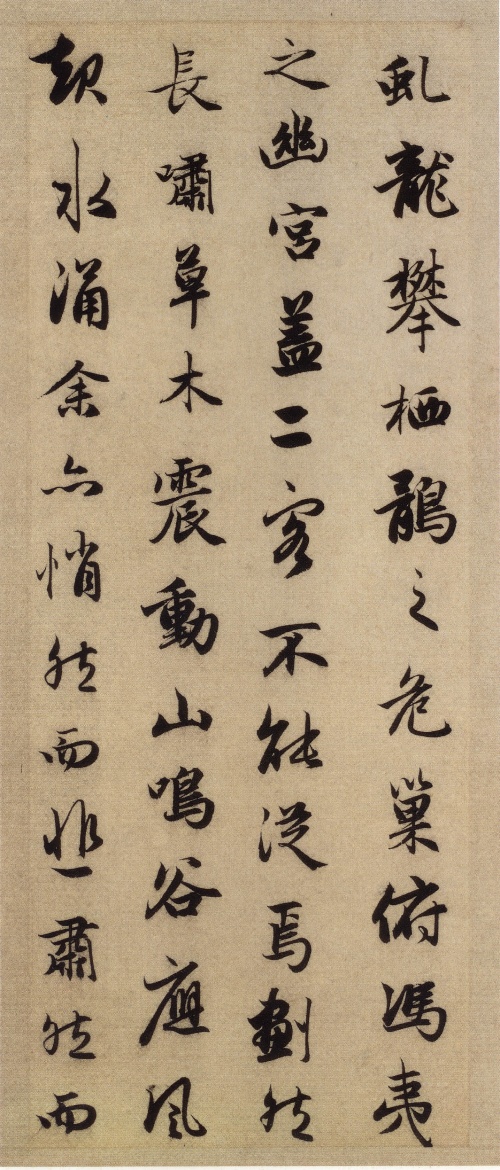 虬龍攀栖鶻之危巢俯馮夷
之幽宮盖二客不能從焉劃然
長嘯草木震動山鳴谷應風
起水涌余亦悄然而悲肅然而